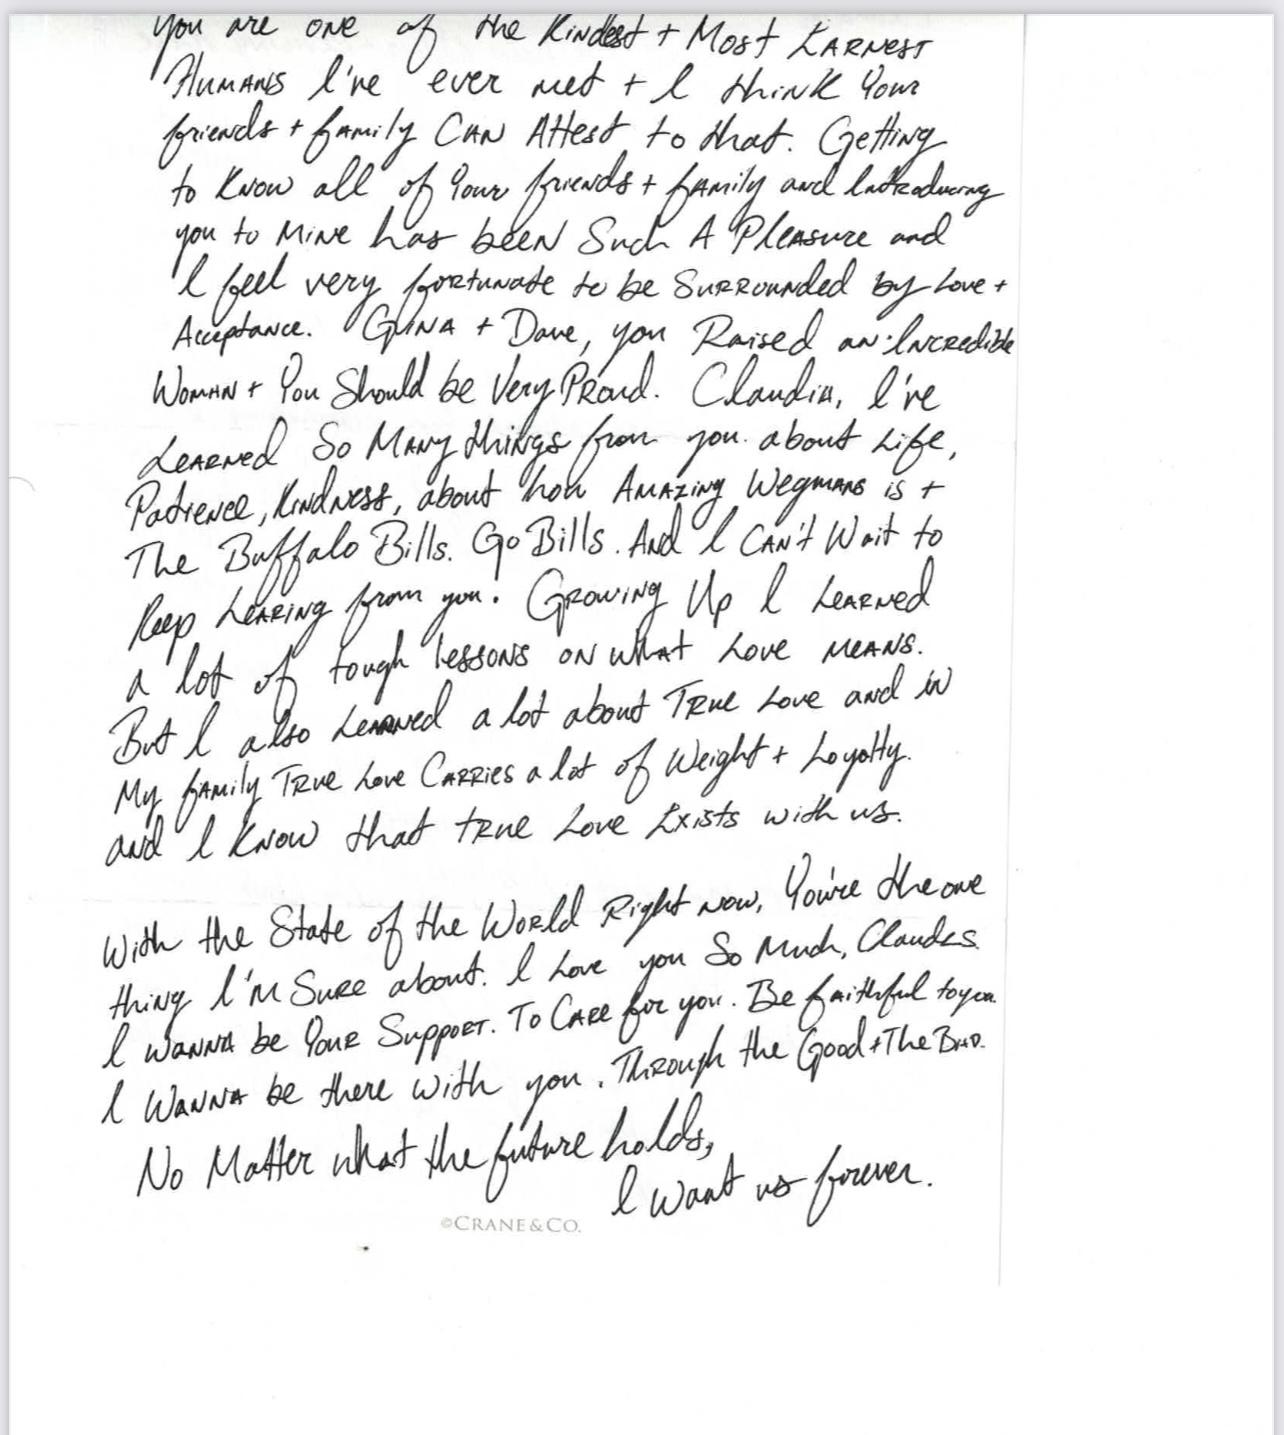 You are one of the Kindest + Most Earnest
Humans I've ever met + I think Your
friends + family Can Attest to that. Getting
to Know all of Your friends + family and Introducing
you to Mine has been Such A Pleasure and
I feel very fortunate to be Surrounded by Love +
Acceptance. Gina + Dave, you Raised an Incredible
Woman + You Should be Very Proud. Claudia, I've
Learned So Many things from you. about Life,
Patience, Kindness, about how Amazing Wegmans is +
The Buffalo Bills. Go Bills. And I Can't Wait to
Keep Learing from you. Growing Up I Learned
a lot of tough lessons on what Love means.
But I also Learned a lot about True Love and in
My family True Love Carries a lot of Weight + Loyalty.
and I Know that true Love Exists with us.
With the State of the World Right now, You're the one
thing I'm Sure about. I Love you So Much, Claudes.
I Wanna be Your Support. To Care for you. Be faithful to you.
I Wanna be there with you. Through the Good + The Bad.
No Matter what the future holds,
I want us forever.
©CRANE&CO.